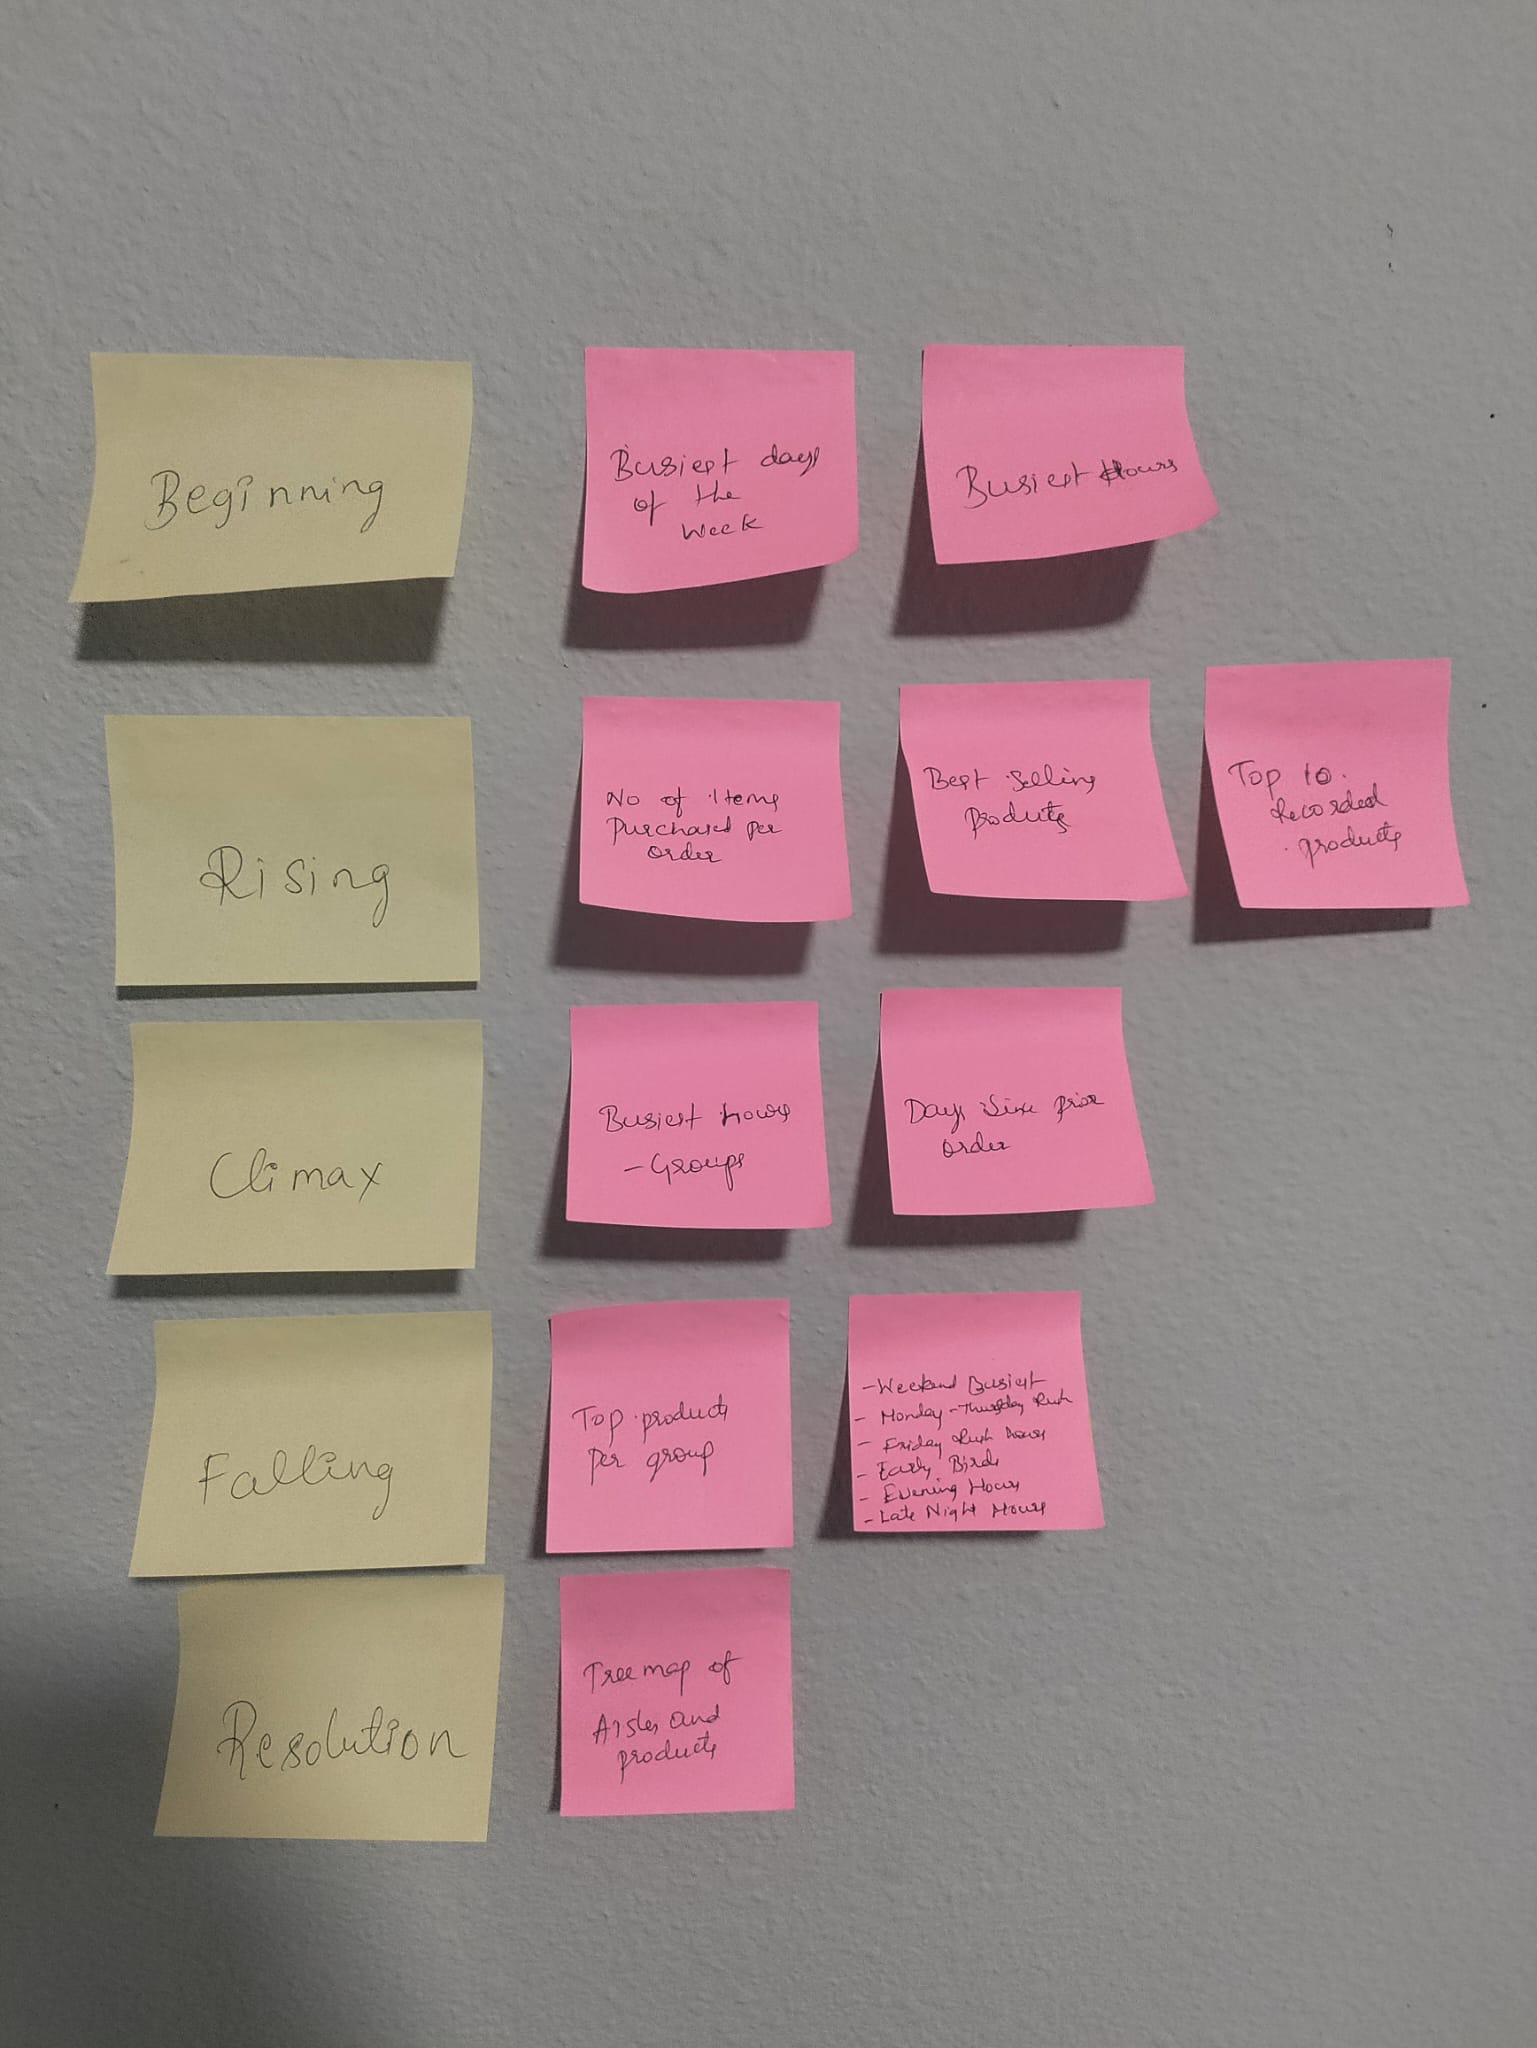 Beginning
Busiest days
of the
week
Busiest Hours
Rising
No of items
purchased per
order
Best Selling
products
Top 10
Recorded
products
Climax
Busiest hours
- Groups
Days since prior
order
Falling
Top products
per group
- Weekend Busiest
- Monday - Thursday Rush
- Friday Rush hours
- Early Birds
- Evening Hours
- Late Night Hours
Resolution
Tree map of
Aisles and
products